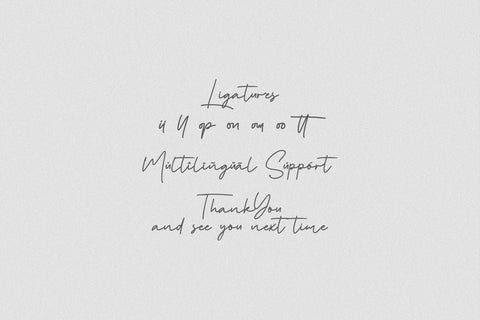 Ligatures
op on om oo tt
Múltîlíñgüãl Súppórt
ThankYou
and see you next time